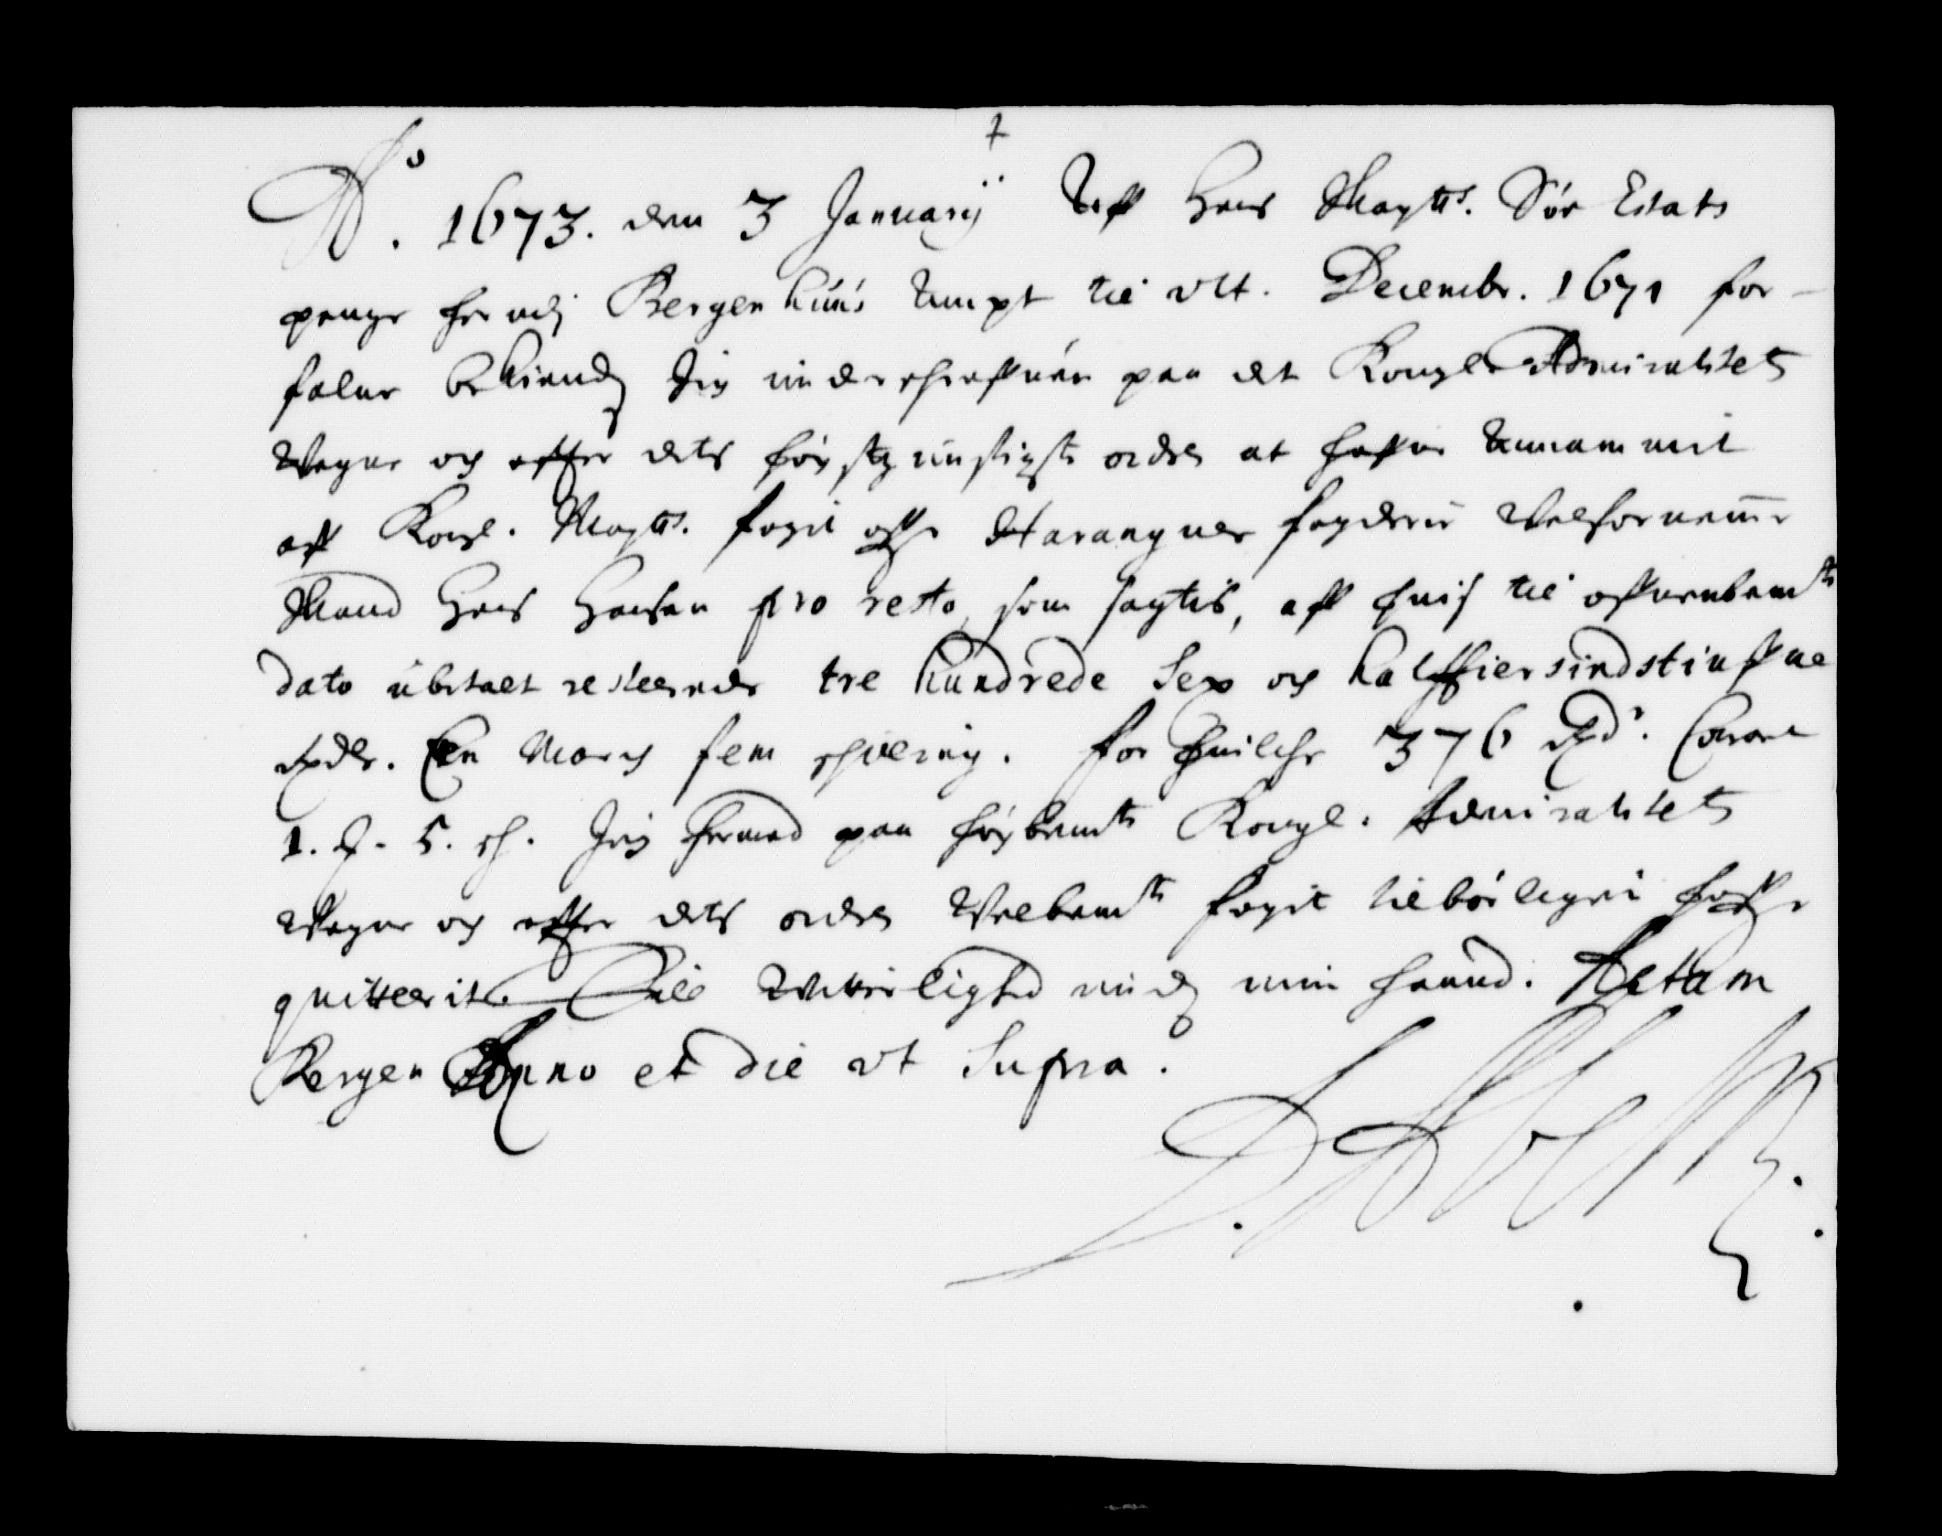 7
Ao. 1673. den 3 Januarÿ Aff Hans Maÿtts. Søe Estats
penge her udj Bergenhuus Ampt til vlt. Decembr. 1671 for-
falne bekiender Jeg underschreffuen paa det Kongl. Admiralitets
Wegne och effter dets høystgunstigste ordre at haffue Annammit
aff Kongl. Maÿtts. fogit offr Hardanger fogderie Welfornemme
Mand Hans Hansen pro resto, som sagtis, aff huis til offuenbemte
dato ubetalt resterende tre hundrede Sex och halffiersindstiuffue
Rxdlr. Een March fem schilling. for huilche 376 Rxdr.
1. ₰. 5. sh. Jeg hermed paa høybemte Kongl. Admiralitets
Wegne och effter dets ordre Welbemte fogit tilbørligen haffr
quitterit. Till Witterlighed under min haand. Actum
Bergen Anno et die vt Supra.